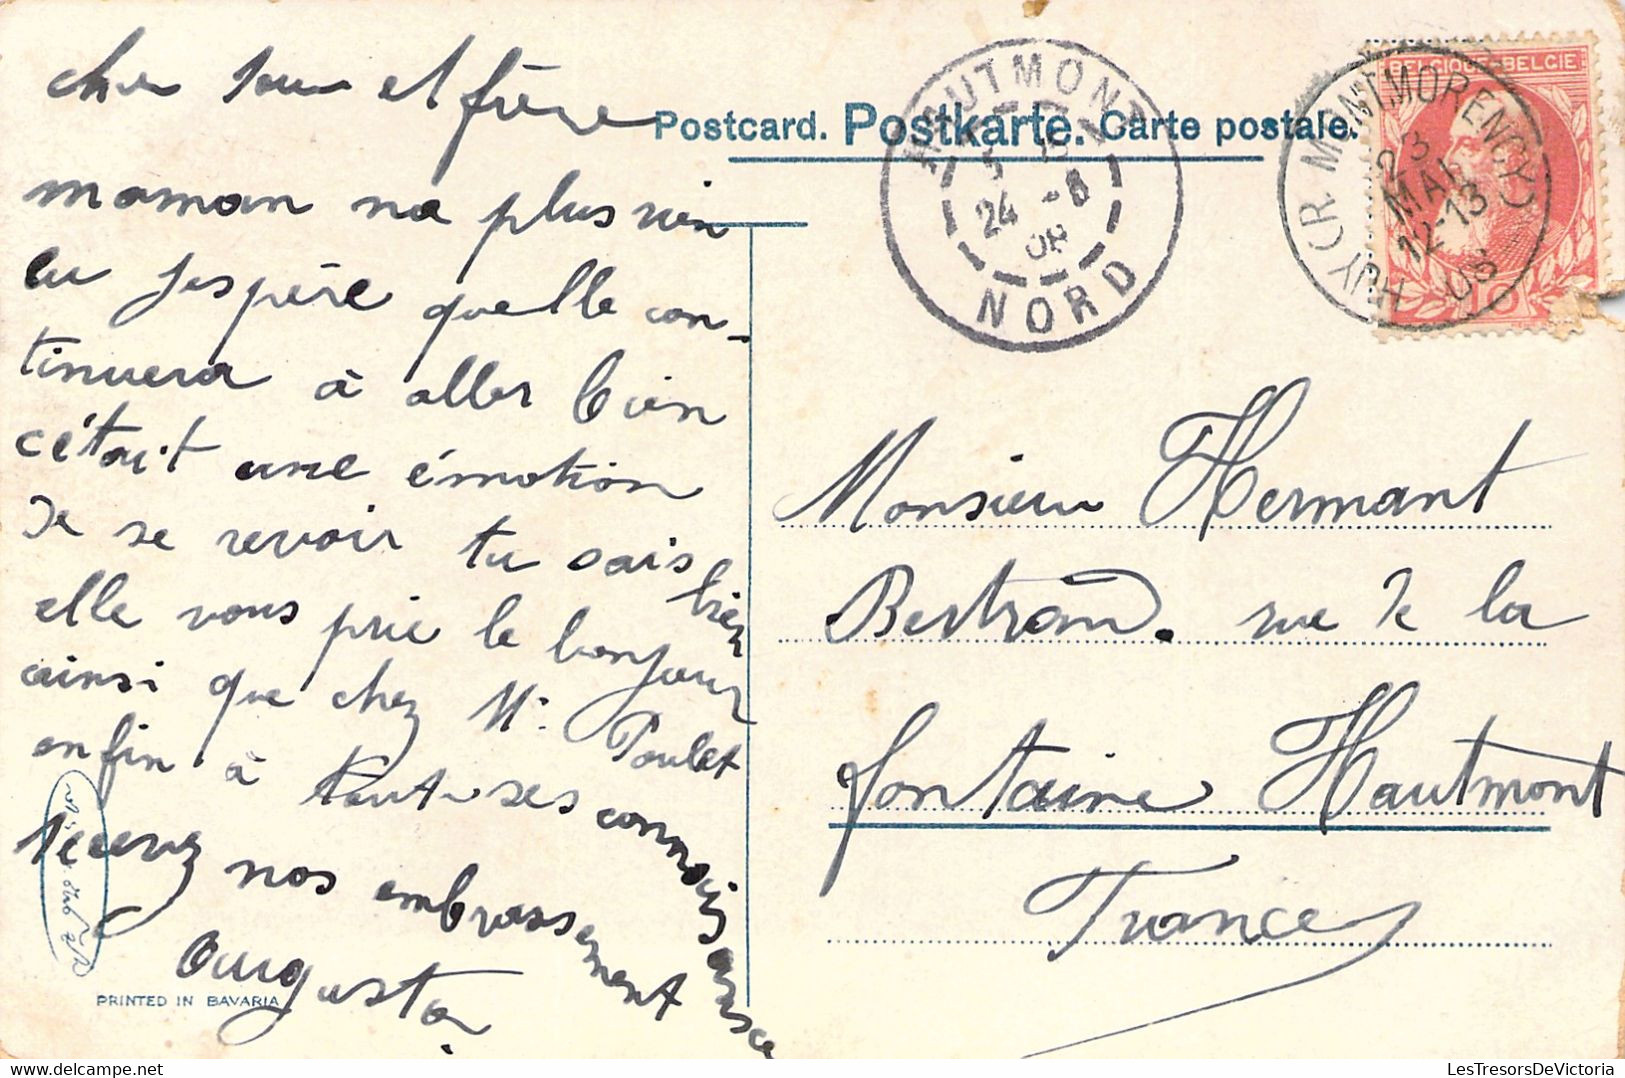 Postcard. Postkarte. Carte postale.
HAUTMONT
24 -8
08
NORD
BELGIQUE-BELGIE
HUY (R. MONTMORENCY)
23
MAI
12-13
08
10
cher soeur et frère
maman na plus rien
eu jespère quelle con-
tinuera à aller bien
c'était une émotion
de se revoir tu sais bien
elle vous prie le bonjour
ainsi que chez Mr. Poulet
enfin à toutes ses connaissance
recevez nos embrassement
Augusta
Monsieur Hermant
Bertrand. rue de la
fontaine Hautmont
France
PRINTED IN BAVARIA
LesTresorsDeVictoria